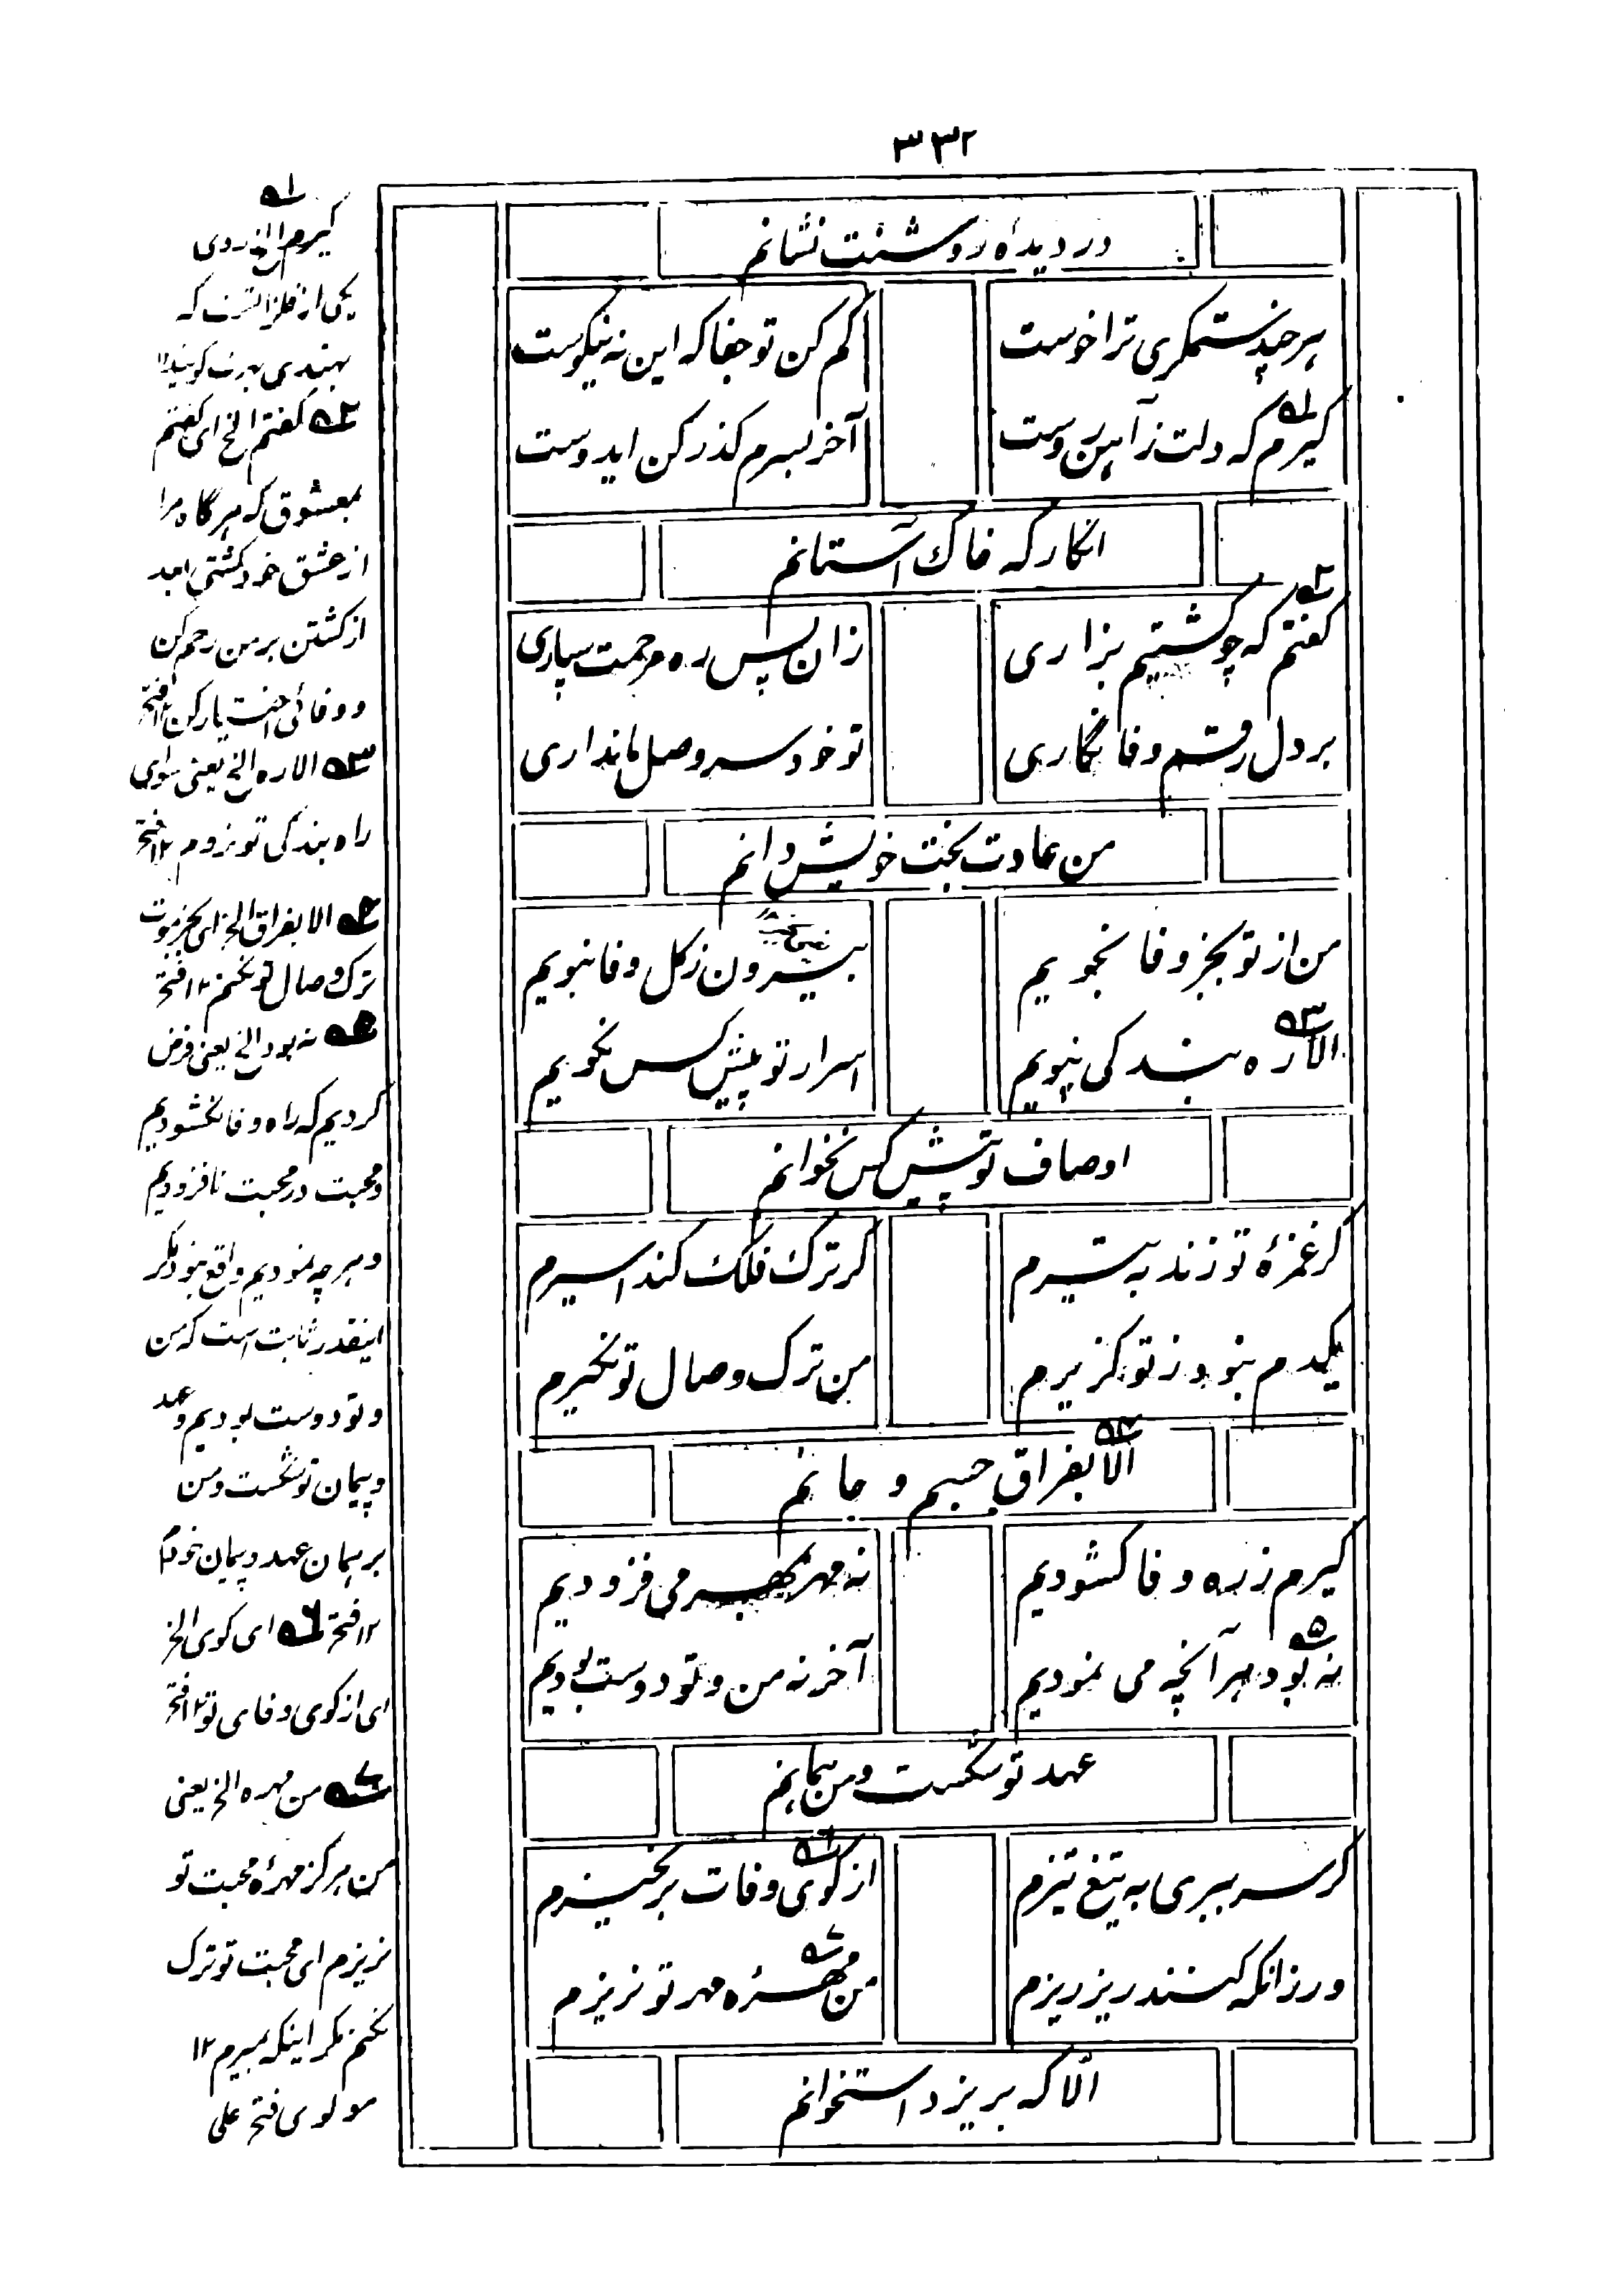 ۳۳۲
در دیده روشنت نشانم
هرچند ستمگری ترا خوست
کم کن تو جفا که این نه نیکوست
گیرم که دلت ز آهن و روست
آخر بسرم گذر کن ایدوست
انگار که خاک آستانم
گفتم که چو کشتیم بزاری
زان پس ره مرحمت سپاری
بر دل رقم وفا نگاری
تو خود سر وصل ما نداری
من عادت بخت خویش دانم
من از تو بجز وفا نجویم
بیرون ز گل وفا نبویم
الا ره بندگی نپویم
اسرار تو پیش کس نگویم
اوصاف تو پیش کس نخوانم
گر غمزهٔ تو زند به تیرم
گر ترک فلک کند اسیرم
یکدم نبود ز تو گزیرم
من ترک وصال تو نگیرم
الا بفراق جسم و جانم
گیرم ز ره وفا گشودیم
نه مهر بمهر می فزودیم
نه بود هر آنچه می نمودیم
آخر نه من و تو دوست بودیم
عهد تو شکست و من همانم
گر سر ببری به تیغ تیزم
از کوی وفات برنخیزم
ور زانکه کنند ریز ریزم
من مهرهٔ مهر تو نریزم
الّا که بریزد استخوانم
۱
گیرم الخ روی
یکی از فلزاتست که
۲ گفتم الخ ای گفتم
بمعشوق که هرگاه مرا
از عشق خود کشتی بعد
از کشتن بر من رحم کن
و وفائی اختیار کن ۱۲ فتح
۳ الا ره الخ یعنی سوای
راه بندگی تو نروم ۱۲ فتح
۴ الا بفراق الخ ای بجز موت
ترک وصال تو نکنم ۱۲ فتح
۵ نه بود الخ یعنی فرض
کردیم که راه وفا نگشودیم
و محبت در محبت نافزودیم
و هرچه نمودیم واقع نبود مگر
اینقدر ثابت است که من
و تو دوست بودیم و عهد
و پیمان تو شکست و من
بر همان عهد و پیمان خودم
۱۲ فتح ۶ ای کوی الخ
ای از کوی وفای تو ۱۲ فتح
۷ من مهره الخ یعنی
من هرگز مهرهٔ محبت تو
نریزم ای محبت تو ترک
نکنم مگر اینکه بمیرم ۱۲
مولوی فتح علی